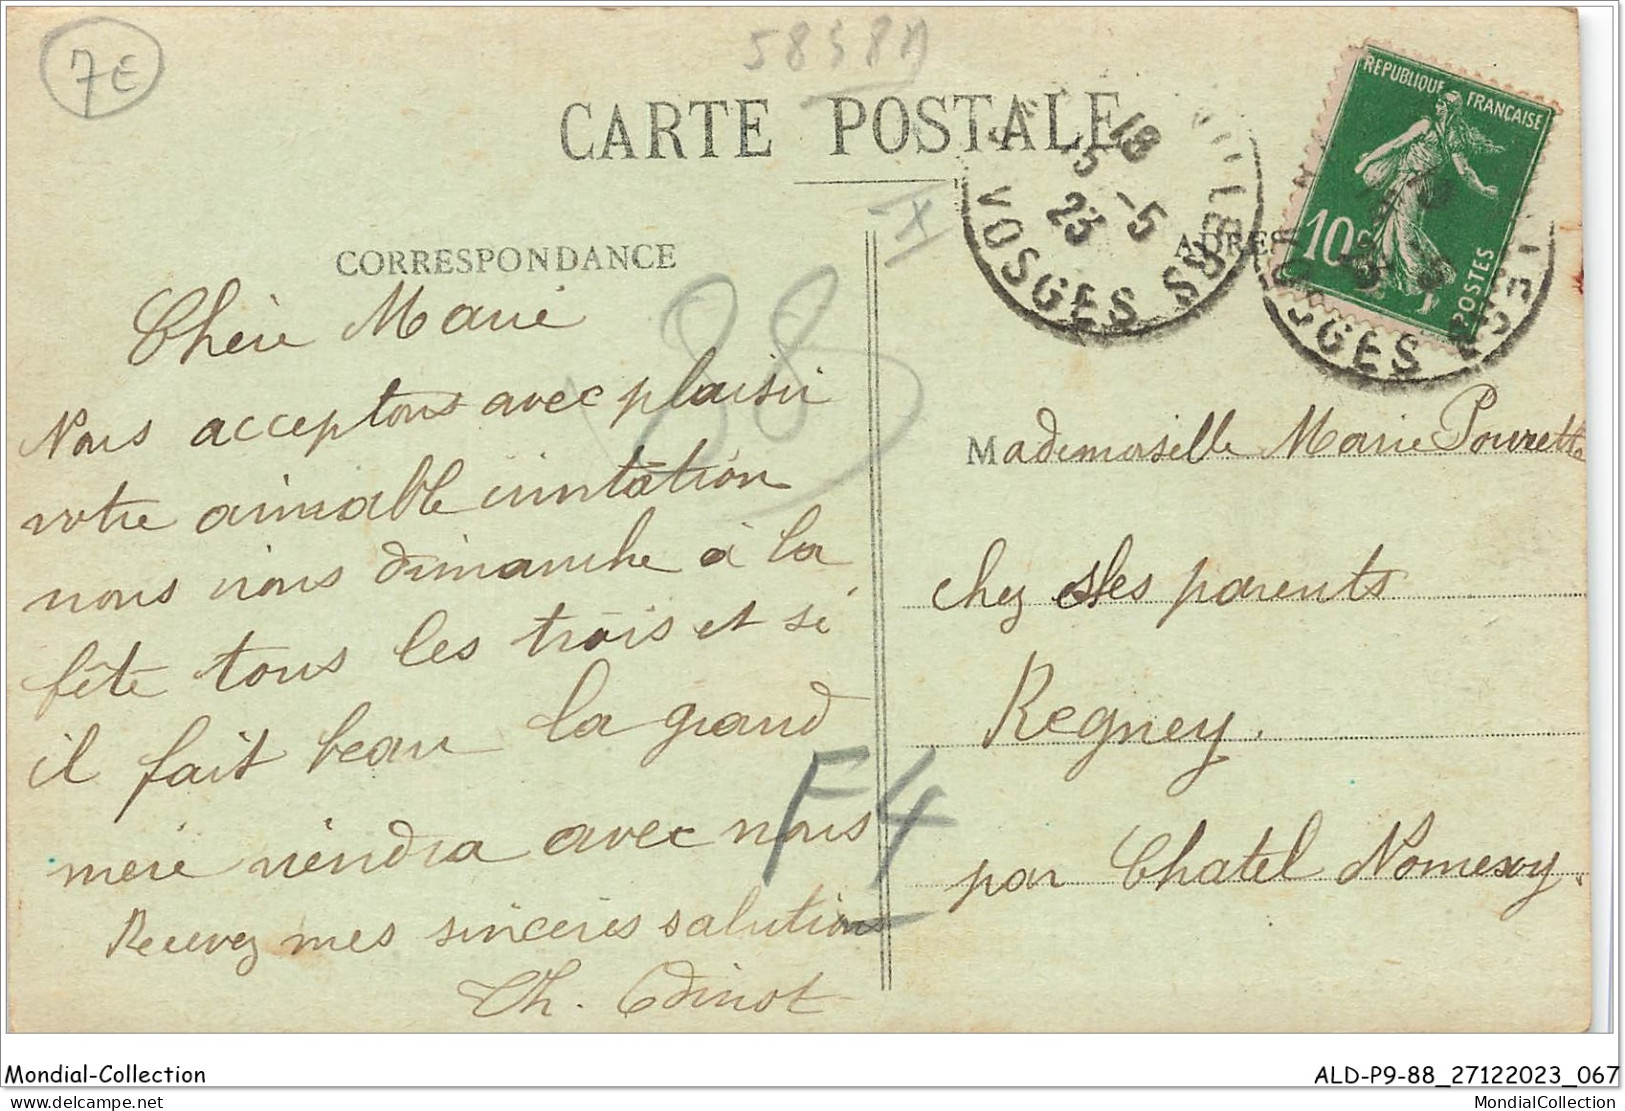 7€
5858A
CARTE POSTALE
X
CORRESPONDANCE
ADRE
18
15 -5
23
VOSGES
REPUBLIQUE FRANÇAISE
10c
POSTES
88
Chère Marie
Nous acceptons avec plaisir
votre aimable invitation
nous irons dimanche à la
fête tous les trois et si
il fait beau la grand
mère viendra avec nous
Recevez mes sincères salutations
Ch. Odinot
F4
Mademoiselle Marie Pourrette
chez ses parents
Regney.
par Chatel Nomexy.
Mondial-Collection
ALD-P9-88_27122023_067
delcampe.net
MondialCollection